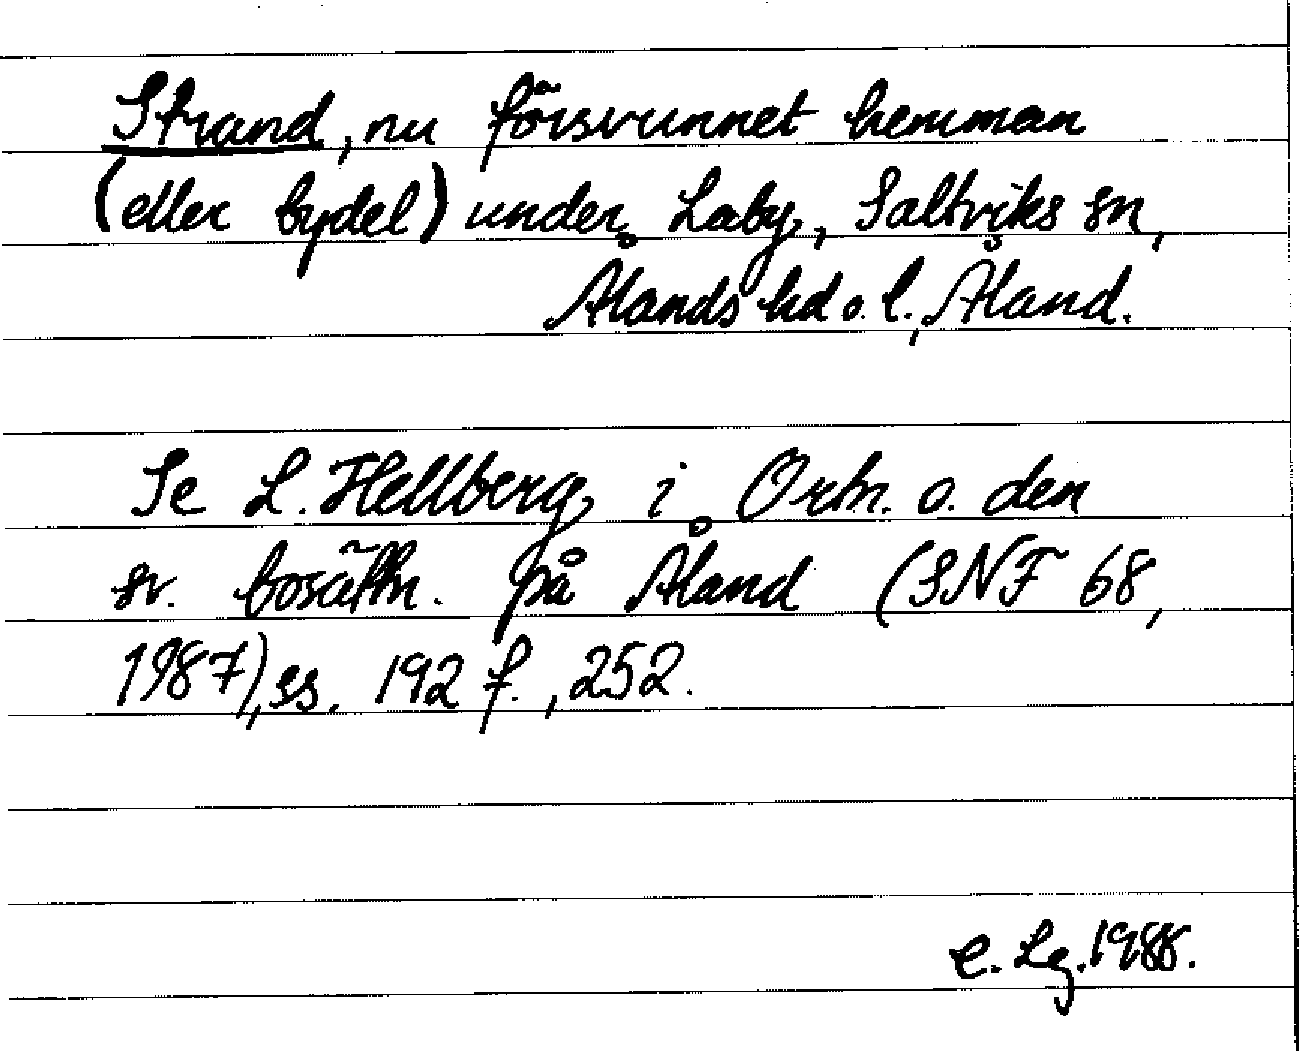 Strand, nu försvunnet hemman
(eller bydel) under Laby, Saltviks sn,
Ålands hd o. l., Åland.
Se L. Hellberg i Ortn. o. den
sv. bosättn. på Åland (SNF 68,
1987), ss. 192 f., 252.
C. Lg. 1988.